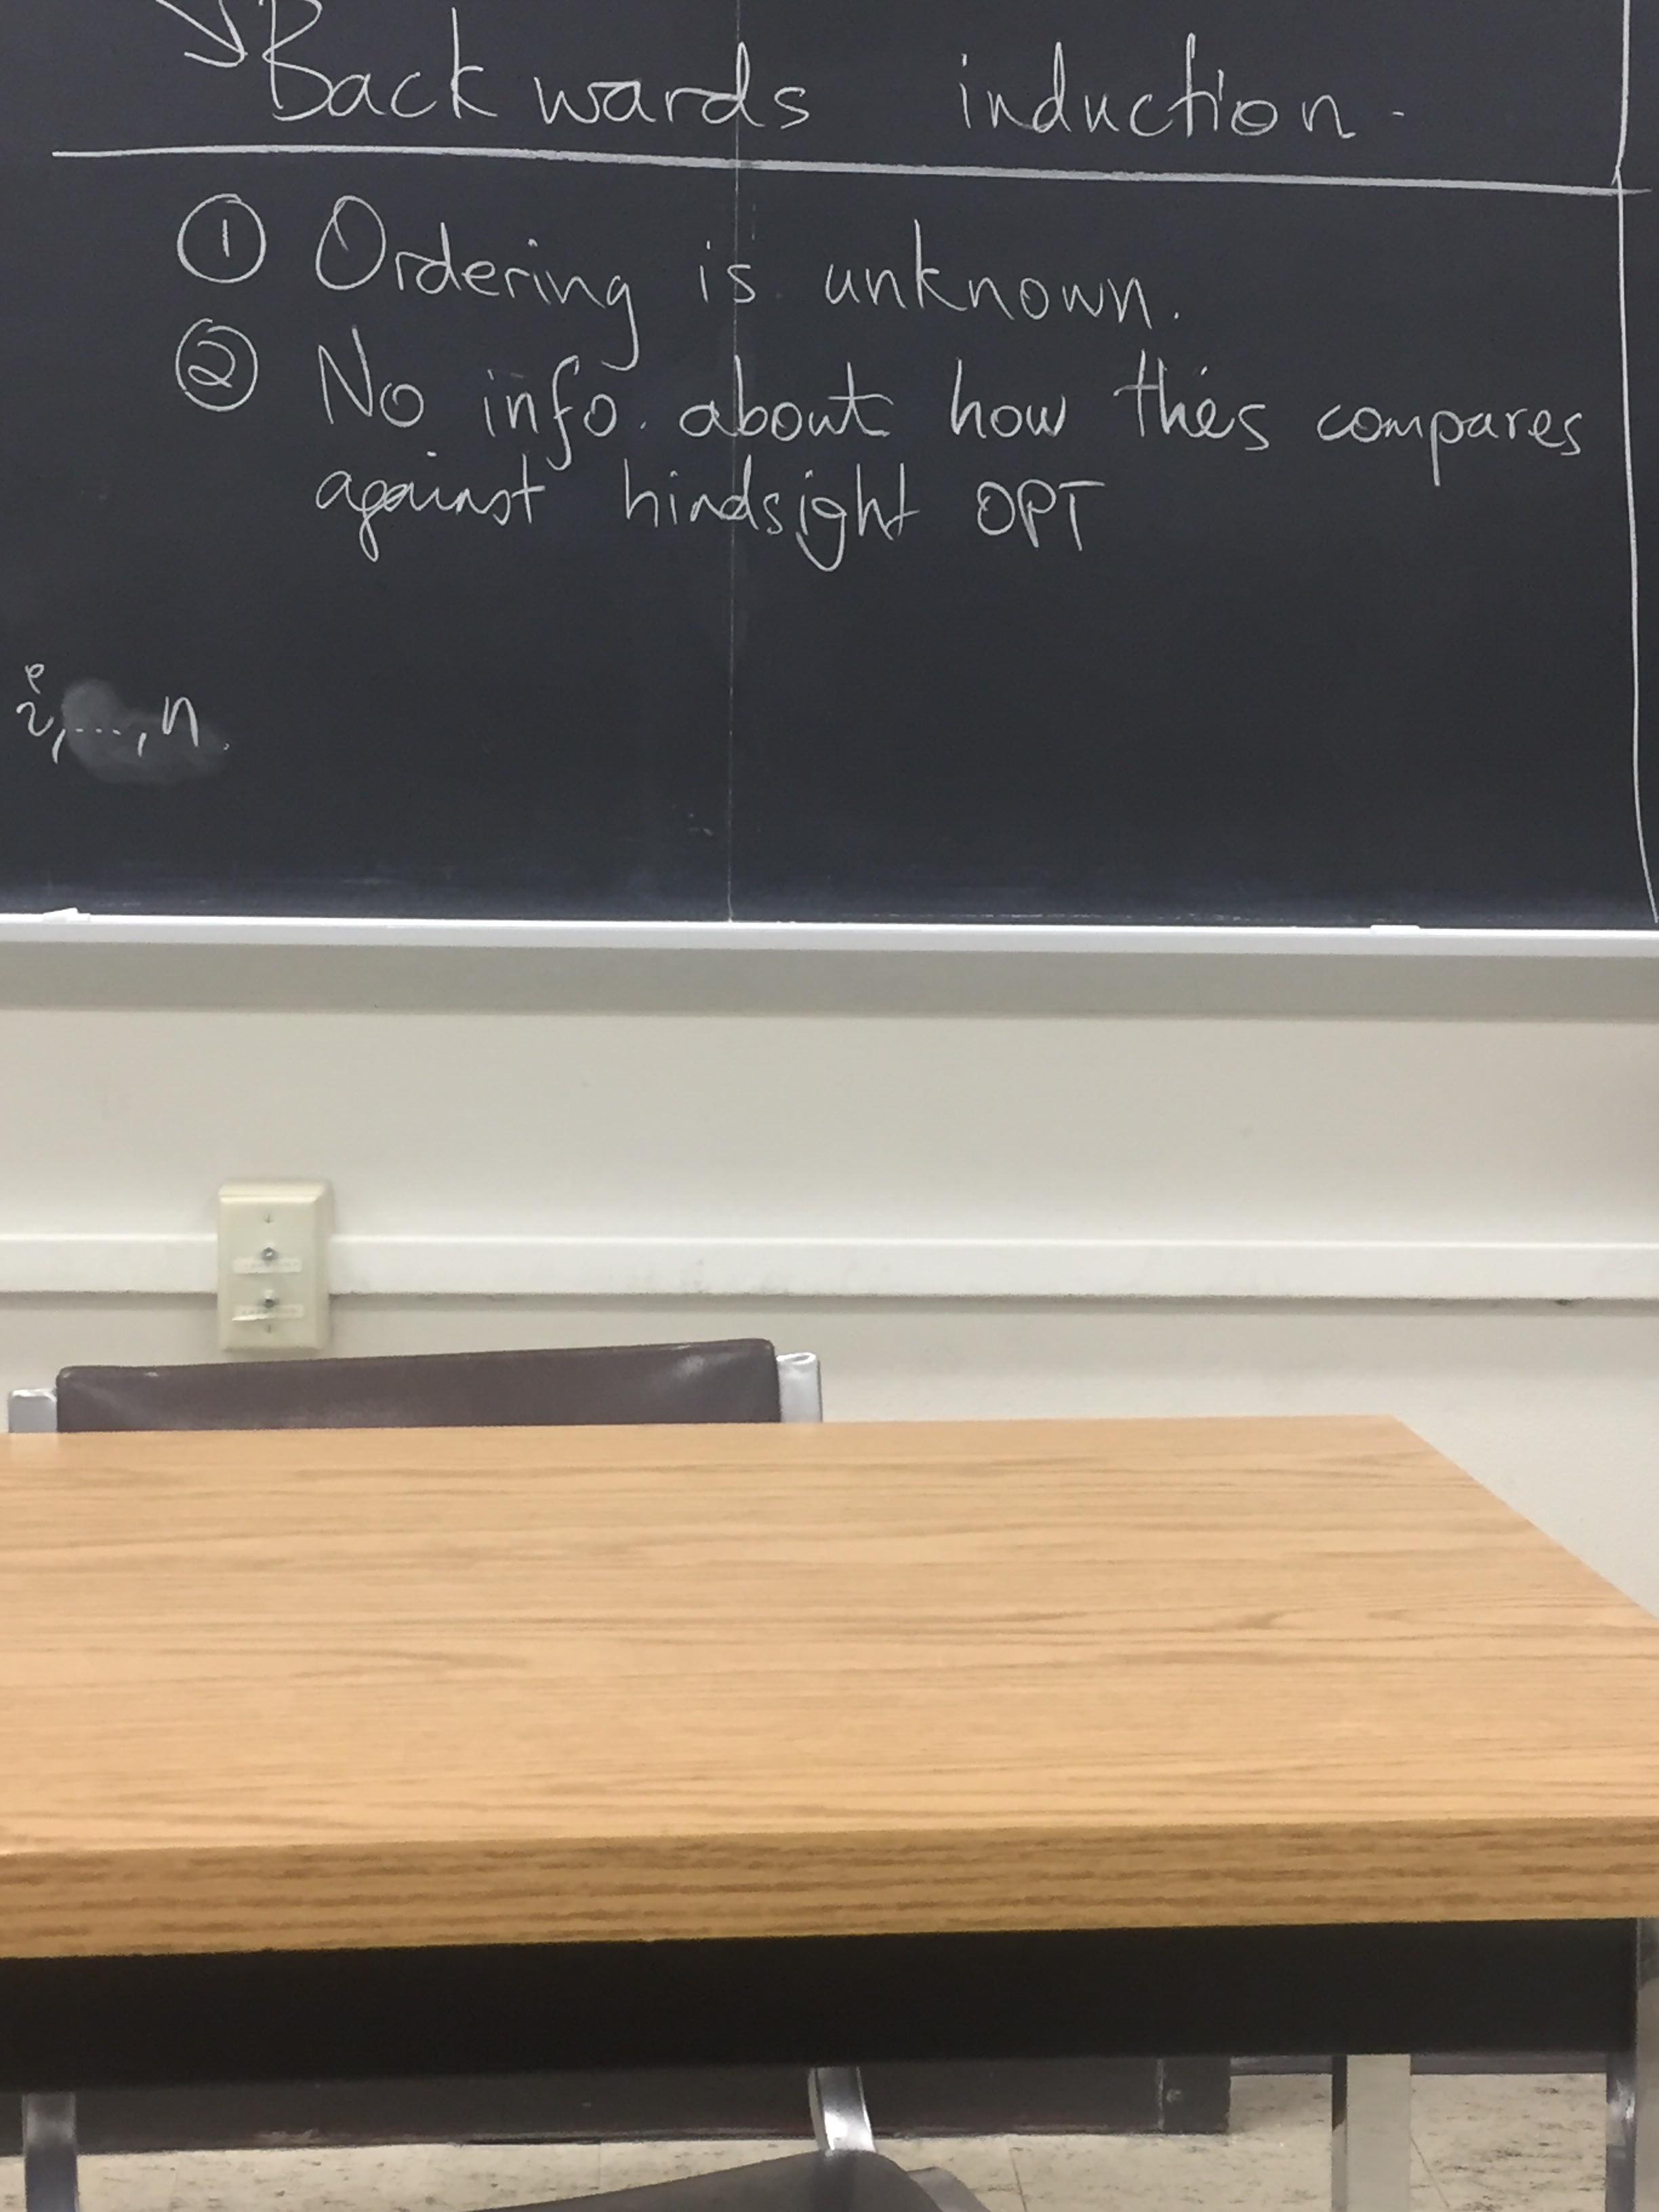 Backwards induction.
① Ordering is unknown.
② No info. about how this compares
against hindsight OPT
i, ..., n.